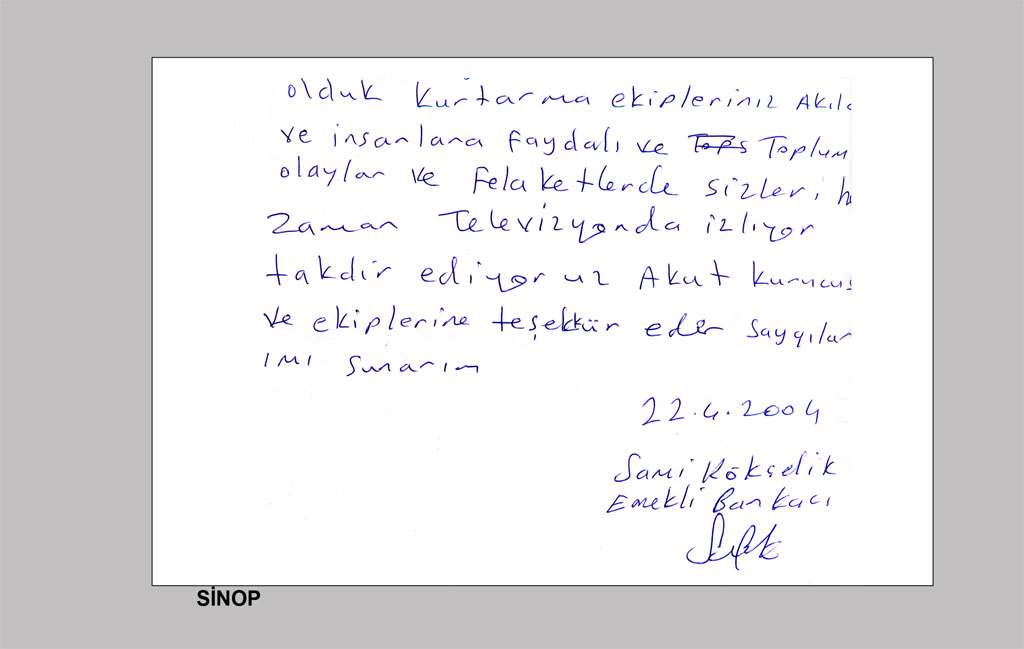 olduk Kurtarma ekipleriniz Akılc
ve insanlara faydalı ve Toplum
olaylar ve Felaketlerde sizleri h
Zaman Televizyonda izlıyor
takdir ediyoruz Akut kurucus
ve ekiplerine teşekkür eder saygılar
ımı sunarım
22.4.2004
Sami Kökçelik
Emekli Bankacı
SİNOP